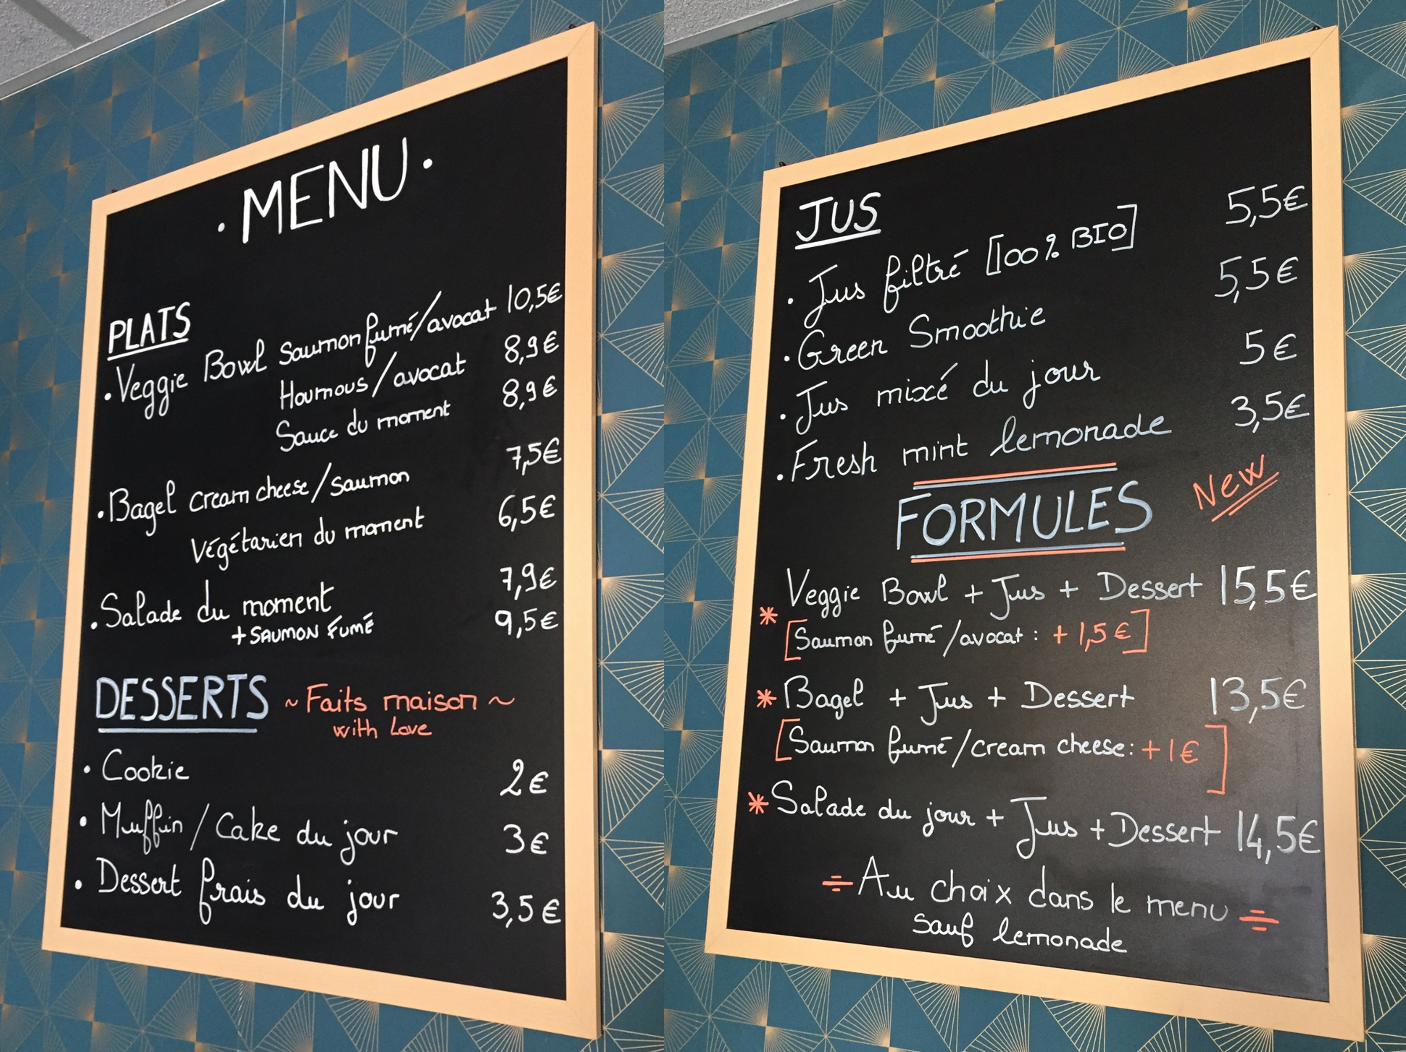 · MENU ·
PLATS
· Veggie Bowl Saumon fumé/avocat 10,5€
Houmous/avocat 8,9€
Sauce du moment 8,9€
· Bagel cream cheese/saumon 7,5€
Végétarien du moment 6,5€
· Salade du moment 7,9€
+ SAUMON FUMÉ 9,5€
DESSERTS ~ Faits maison ~
with Love
· Cookie 2€
· Muffin/Cake du jour 3€
· Dessert frais du jour 3,5€
JUS
· Jus filtré [100% BIO] 5,5€
· Green Smoothie 5,5€
· Jus mixé du jour 5€
· Fresh mint lemonade 3,5€
FORMULES New
* Veggie Bowl + Jus + Dessert 15,5€
[Saumon fumé/avocat : + 1,5€]
* Bagel + Jus + Dessert 13,5€
[Saumon fumé/cream cheese: +1€]
* Salade du jour + Jus + Dessert 14,5€
÷ Au choix dans le menu ÷
sauf lemonade